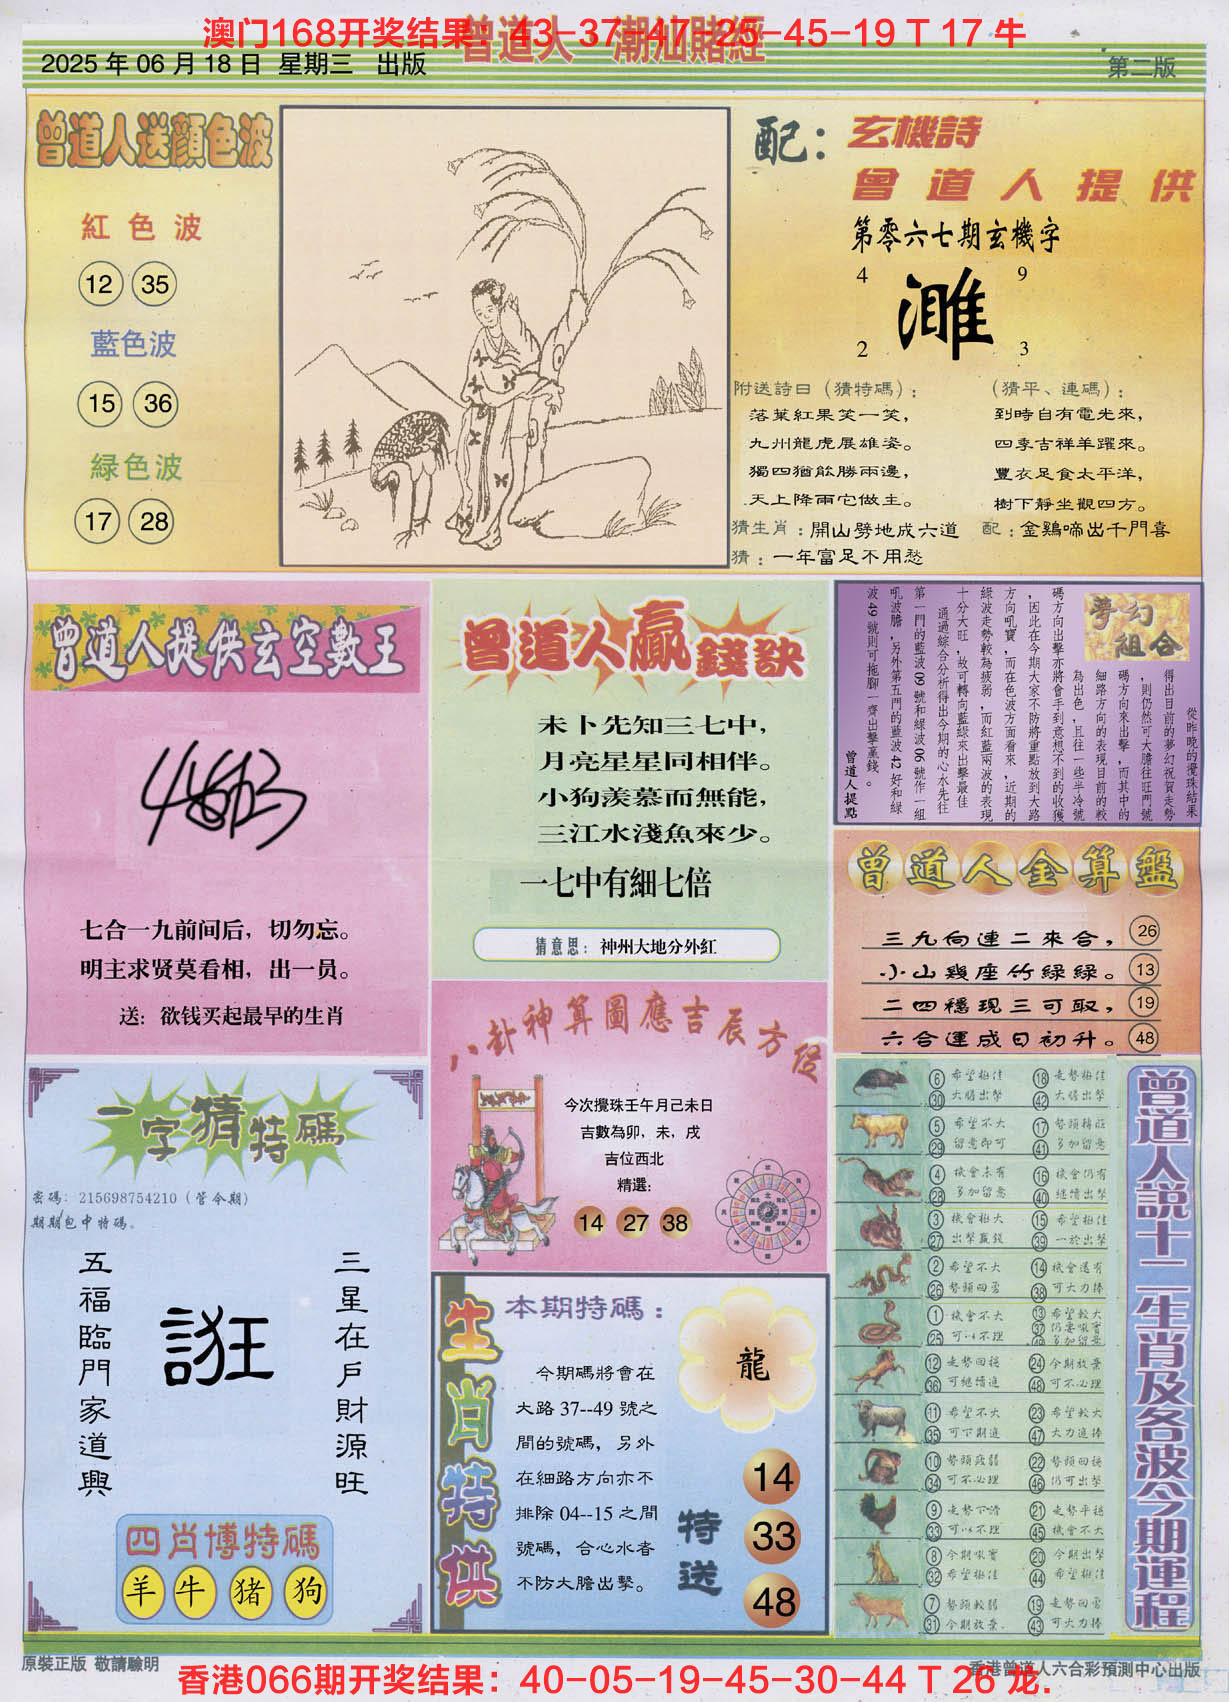 澳门168开奖结果：43-37-47-25-45-19 T 17 牛
曾道人 潮汕賭經
2025 年 06 月 18 日 星期三 出版
第二版
曾道人送顔色波
紅色波
12 35
藍色波
15 36
緑色波
17 28
配：
玄機詩
曾道人提供
第零六七期玄機字
4 9
雎
2 3
附送詩曰（猜特碼）：
落葉紅果笑一笑，
九州龍虎展雄姿。
獨四猶能勝兩邊，
天上降雨它做主。
（猜平、連碼）：
到時自有電光來，
四季吉祥羊躍來。
豐衣足食太平洋，
樹下靜坐觀四方。
猜生肖：開山劈地成六道
配：金鷄啼出千門喜
猜：一年富足不用愁
曾道人提供玄空數王
七合一九前间后，切勿忘。
明主求贤莫看相，出一员。
送：欲钱买起最早的生肖
曾道人贏錢訣
未卜先知三七中，
月亮星星同相伴。
小狗羡慕而無能，
三江水淺魚來少。
一七中有細七倍
猜意思：神州大地分外紅
夢幻組合
從昨晚的攪珠結果
得出目前的夢幻祝賀走勢
，則仍然可大膽往旺門號
碼方向來出擊，而其中的
細路方向的表現目前的較
為出色，且往一些半冷號
碼方向出擊亦將會手到意想不到的收獲
，因此在今期大家不防將重點放到大路
方向吼寶，而在色波方面看來，近期的
綠波走勢較為疲弱，而紅藍兩波的表現
十分大旺，故可轉向藍綠來出擊最佳
通過綜合分析得出今期的心水先往
第一門的藍波 09 號和綠波 06 號作一組
吼波膽，另外第五門的藍波 42 好和綠
波 49 號則可拖腳一齊出擊贏錢。
曾道人提點
曾道人金算盤
三九向連二來合， 26
小山幾座竹緑緑。 13
二四穩現三可取， 19
六合運成日初升。 48
八卦神算圖應吉辰方位
今次攪珠壬午月己未日
吉數為卯，未，戌
吉位西北
精選:
14 27 38
一字猜特碼
密碼：215698754210（管令期）
期期包中特碼。
三星在戶財源旺
誑
五福臨門家道興
四肖博特碼
羊 牛 猪 狗
生肖特供
本期特碼：
今期碼將會在
大路 37--49 號之
間的號碼，另外
在細路方向亦不
排除 04--15 之間
號碼，合心水者
不防大膽出擊。
龍
特送
14
33
48
曾道人説十二生肖及各波今期運程
6 30 希望極佳 大膽出擊 18 42 走勢極佳 大膽出擊
5 29 希望不大 留意即可 17 41 勢頭轉旺 多加留意
4 28 機會未有 多加留意 16 40 機會仍有 繼續出擊
3 27 機會極大 出擊贏錢 15 39 希望極佳 一於出擊
2 26 希望不大 勢頭回勇 14 38 機會還有 可大力捧
1 25 機會不大 可以不理 13 37 49 希望較大 仍要吼實 多加留意
12 36 走勢回穩 可繼續追 24 48 今期放棄 可不必理
11 35 希望不大 可下期追 23 47 希望較大 大力追捧
10 34 勢頭疲弱 可不必理 22 46 勢頭回穩 仍可出擊
9 33 走勢下滑 可以不理 21 45 走勢平穩 機會不大
8 32 今期吼實 希望極佳 20 44 今期出擊 希望極佳
7 31 勢頭較弱 今期放棄. 19 43 走勢回勇 可大力捧
原裝正版 敬請驗明
香港曾道人六合彩預測中心出版
香港066期开奖结果：40-05-19-45-30-44 T 26 龙.